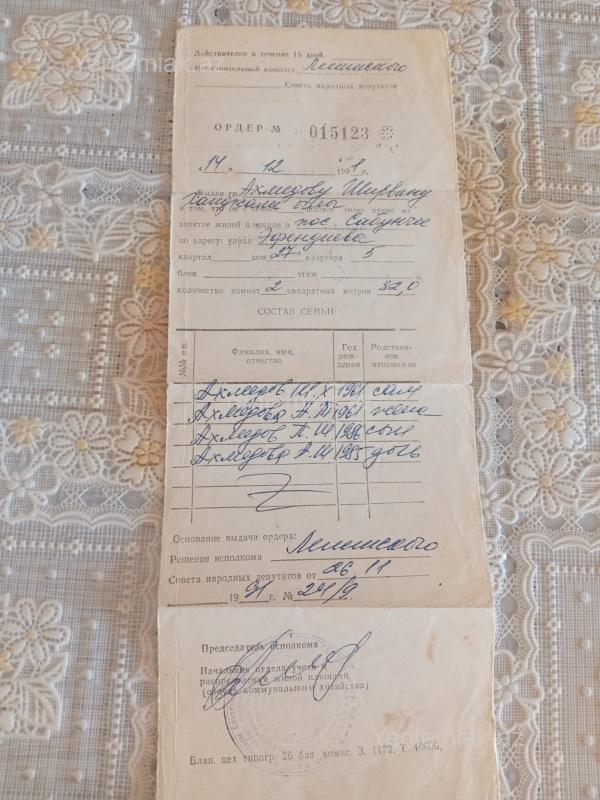 Действителен в течение 15 дней.
Исполнительный комитет Ленинского
Совета народных депутатов
ОРДЕР № 015123
„14„ 12 1991 г.
Выдан гр. Ахмедову Ширвану
оглы
в том, что он с семьей из человек имеет право на
занятие жилой площади в пос. Сабунчи
по адресу: улица Эфендиева
квартал дом 27 квартира 5
блок этаж
количество комнат 2 квадратных метров 32,0
СОСТАВ СЕМЬИ:
№№ п.п. Фамилия, имя, отчество Год рождения Родственное отношение
Ахмедов Ш. Х 1961 сам
Ахмедова А. 1961 жена
Ахмедов П. Ш 1986 сын
Ахмедова А. Ш 1985 дочь
Основание выдачи ордера:
Решение исполкома Ленинского
Совета народных депутатов от 26 11.
1991 г. № 24/9.
Председатель исполкома
Начальник отдела учета и
распределения жилой площади
(отдела коммунального хозяйства)
Блан. цех типогр. 26 бак. комис. З. 1172. Т.